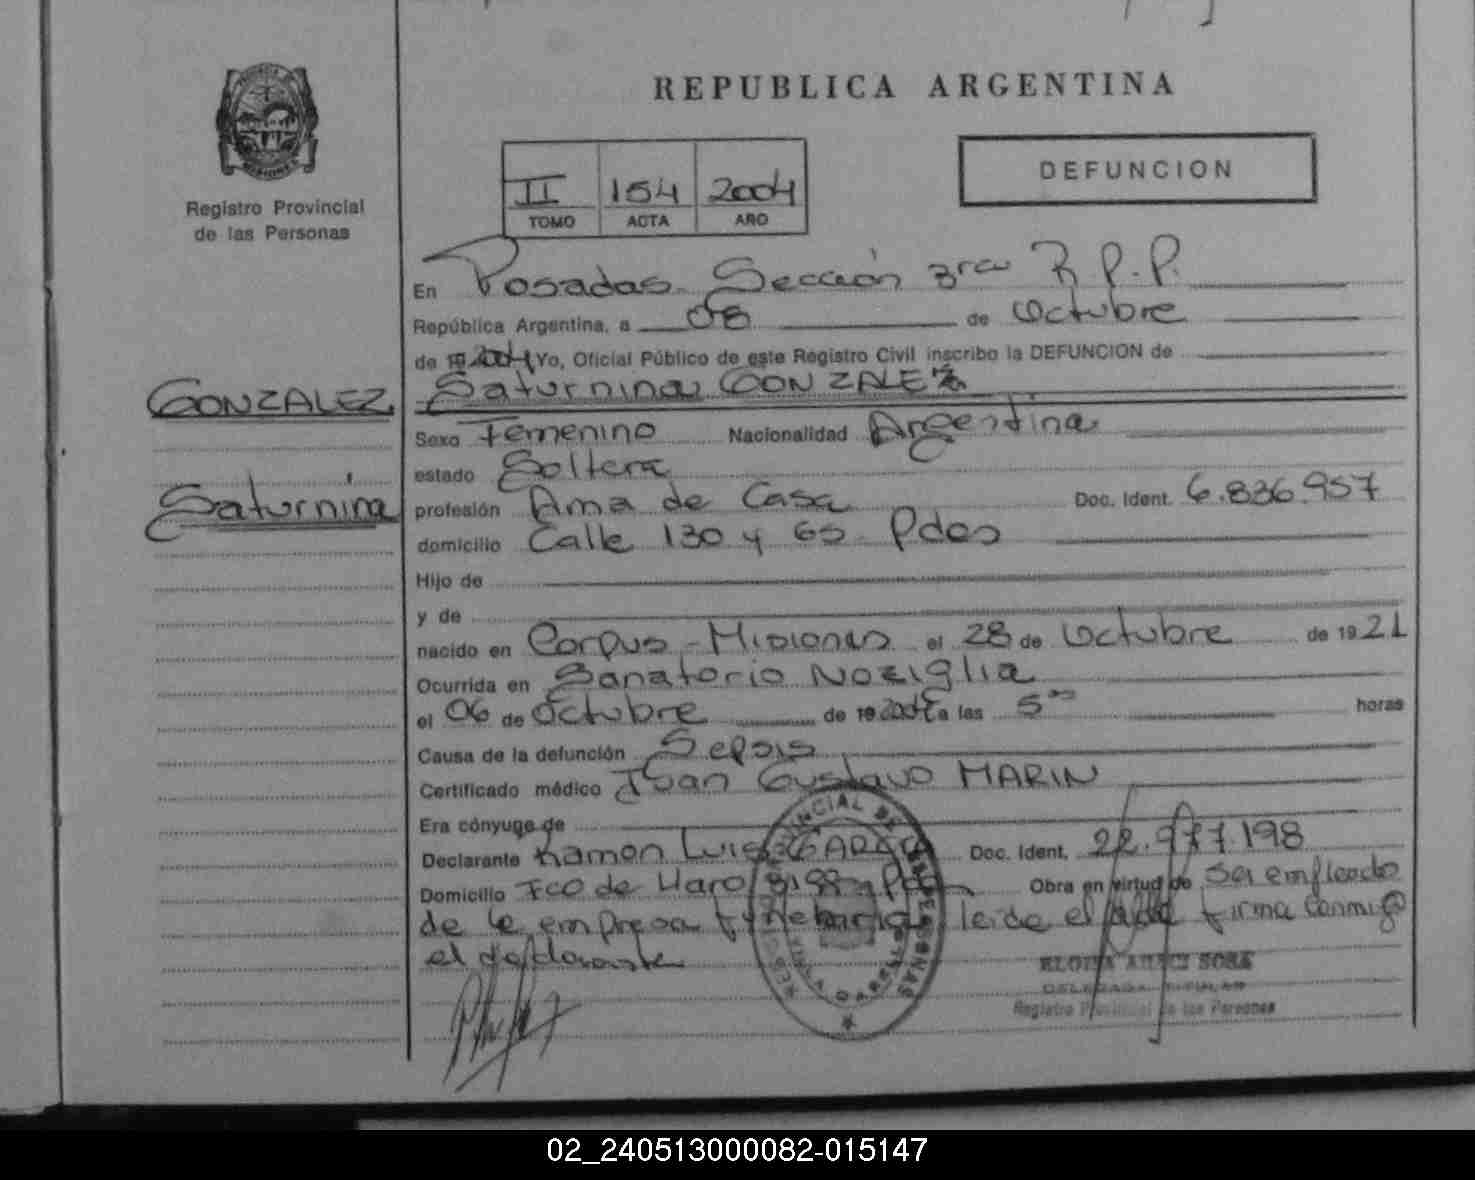 REPUBLICA ARGENTINA
DEFUNCION
Registro Provincial
de las Personas
II 154 2004
TOMO ACTA AÑO
En Posadas Sección 3ra R.P.P.
República Argentina, a 08 de Octubre
de 19 2004 Yo, Oficial Público de este Registro Civil inscribo la DEFUNCION de
GONZALEZ
Saturnina GONZALEZ
Sexo Femenino Nacionalidad Argentina
estado Soltera
Saturnina
profesión Ama de Casa Doc. Ident. 6.836.957
domicilio Calle 130 y 65 Pdas
Hijo de
y de
nacido en Corpus - Misiones el 28 de Octubre de 19 21
Ocurrida en Sanatorio Noziglia
el 06 de Octubre de 19 2004 a las 5 horas
Causa de la defunción Sepsis
Certificado médico Juan Gustavo MARIN
Era cónyuge de
Declarante Ramon Luis Doc. Ident. 22.977.198
Domicilio Fco de Haro Obra en virtud de Ser empleado
de la empresa funeraria leida el acta firma conmigo
el declarante
DELEGADA TITULAR
Registro Provincial de las Personas
02_240513000082-015147